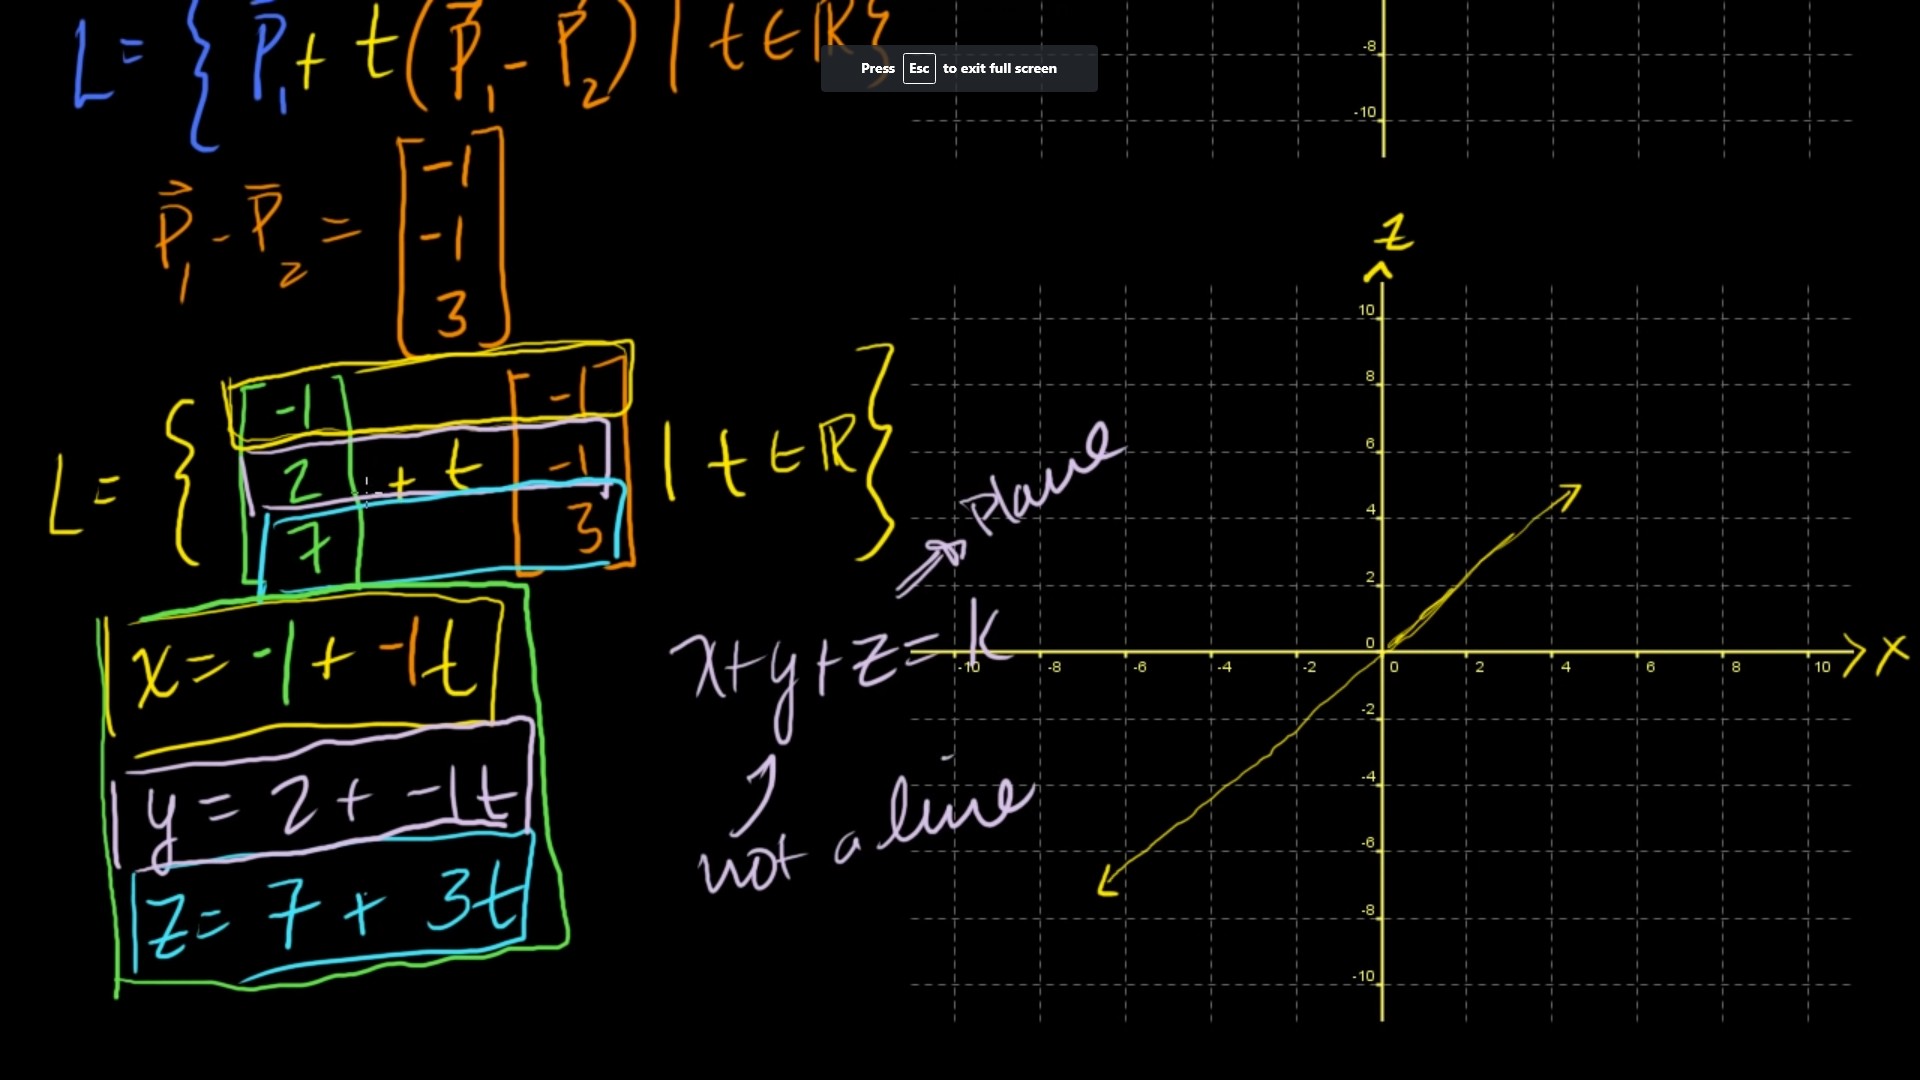 L = { P₁ + t(P₁ - P₂) | t ∈ ℝ }
Press Esc to exit full screen
P₁ - P₂ = [ -1
-1
3 ]
L = { [ -1 2 7 ] + t [ -1 -1 3 ] | t ∈ ℝ }
x = -1 + -1t
y = 2 + -1t
z = 7 + 3t
Plane
x+y+z = k
not a line
-8
-10
Z
10
8
6
4
2
0
-10 -8 -6 -4 -2 0 2 4 6 8 10 X
-2
-4
-6
-8
-10